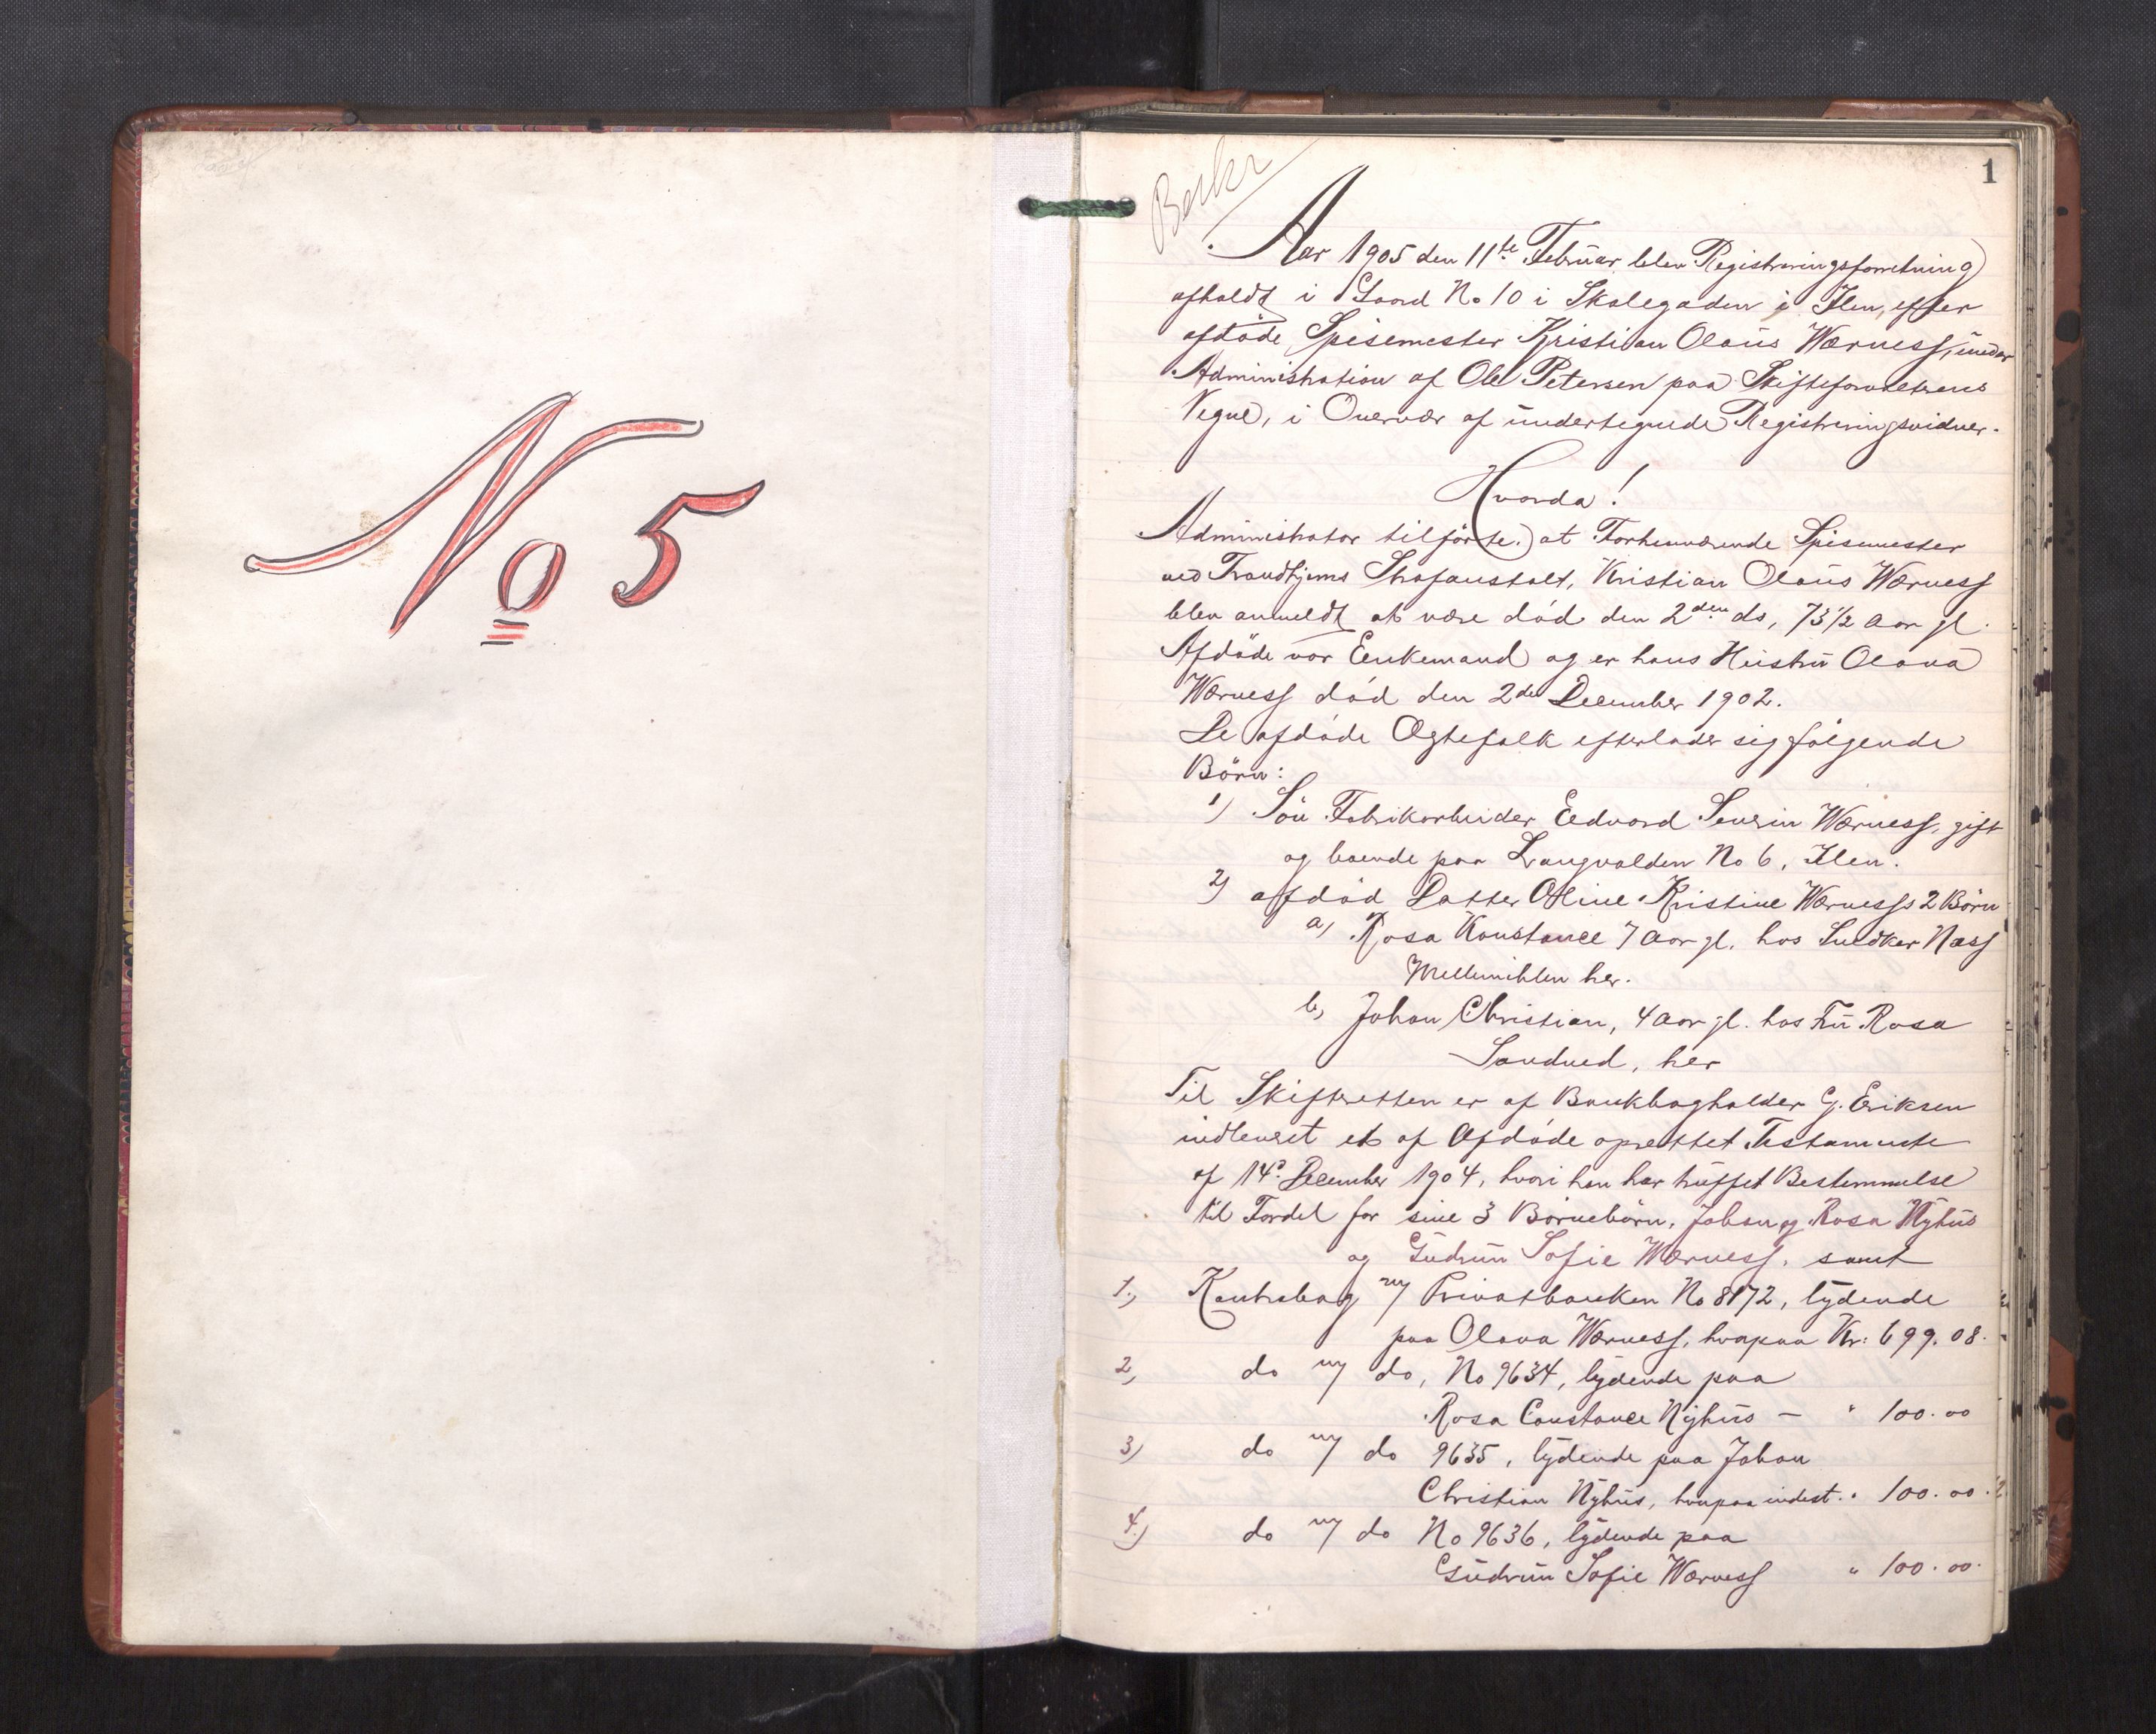 No 5
1
Aar 1905 den 11te Februar blev Registreringsforretning
afholdt i Gaard No 10 i Skolegaden i Ilen, efter
afdøde Spisemester Kristian Olaus Wærness, under
Administration af Ole Petersen paa Skifteforvalterens
Vegne, i Overvær af undertegnede Registreringsvidner.
Hvorda!
Administrator tilførte: at Forhenværende Spisemester
ved Trondhjems Strafanstalt, Kristian Olaus Wærness
blev anmeldt at være død den 2den ds, 73 1/2 Aar gl.
Afdøde var Enkemand og er hans Hustru Olava
Wærness død den 2den December 1902.
De afdøde Ægtefolk efterlader sig følgende
Børn:
1) Søn Fabrikarbeider Edvard Severin Wærness, gift
og boende paa Langvolden No 6, Ilen.
2) afdød Datter Oline Kristine Wærness's 2 Børn
a) Rosa Konstance 7 Aar gl. hos Snedker Næss
Mellemihlen her.
b) Johan Christian, 4 Aar gl. hos Fru Rosa
Sandved, her
Til Skifteretten er af Bankbogholder G. Eriksen
indleveret et af Afdøde oprettet Testamente
af 14d. December 1904, hvori han har truffet Bestemmelse
til Fordel for sine 3 Børnebørn, Johan og Rosa Nyhus
og Gudrun Sofie Wærness, samt
1.) Kontrabog m/ Privatbanken No 8172, lydende
paa Olava Wærness, hvorpaa Kr: 699.08.
2) do m/ do, No 9634, lydende paa
Rosa Constance Nyhus — " 100.00
3) do m/ do 9635, lydende paa Johan
Christian Nyhus, hvorpaa indest. " 100.00.
4.) do m/ do No 9636, lydende paa
Gudrun Sofie Wærness " 100.00.